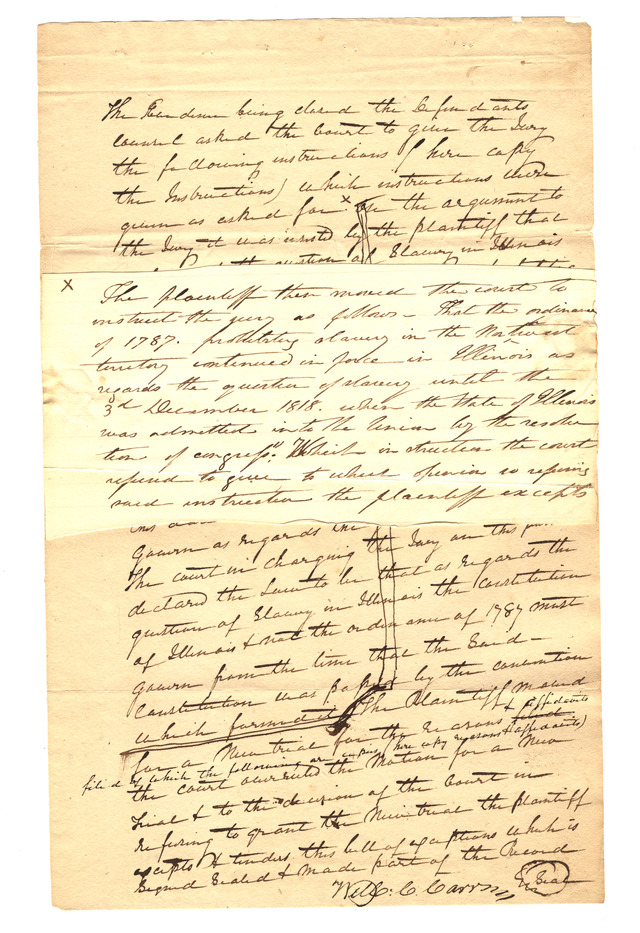 The Evidence being closed the Defendants
counsel asked the Court to give the Jury
the following instructions (here copy
the Instructions) which instructions were
given as asked for x In the argument to
the Jury it was insisted by the plaintiff that
the question of Slavery in Illinois
x The plaintiff then moved the court to
instruct the jury as follows - That the ordinance
of 1787. prohibiting slavery in the Northwest
territory continued in force in Illinois as
regards the question of slavery until the
3d December 1818. when the State of Illinois
was admitted into the Union by the resolu
tion of congress." Which instruction the court
refused to give to which opinion so refusing
said instruction the plaintiff excepts
govern as regards the
The court in charging the Jury on this
declared the Law to be that as regards the
question of Slavery in Illinois the Constitution
of Illinois & not the ordinance of 1787 must
govern from the time that the Said -
Constitution was passed by the convention
which formed it The Plaintiff moved
for a New trial for the reasons & affidavits
filed of which the following are copies (here copy reasons & affidavits)
the court overruled the Motion for a New
trial & to the decision of the Court in
refusing to grant the New trial the plaintiff
excepts & tenders this bill of exceptions which is
Signed Sealed & made part of the Record
Will: C. Carr Seal